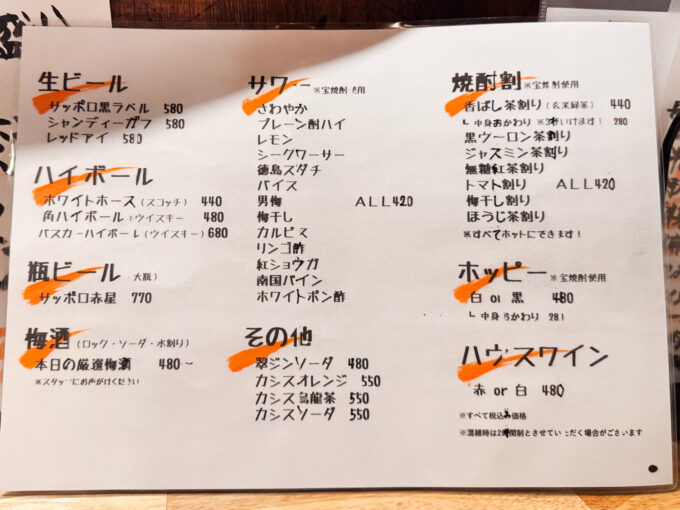 生ビール
サッポロ黒ラベル 580
シャンディーガフ 580
レッドアイ 580
ハイボール
ホワイトホース(スコッチ) 440
角ハイボール(ウイスキー 480
バスカーハイボール(ウイスキー) 680
瓶ビール(大瓶)
サッポロ赤星 770
梅酒(ロック・ソーダ・水割り)
本日の厳選梅酒 480~
※スタッフにお声がけください
サワー ※宝焼酎使用
さわやか
プレーン酎ハイ
レモン
シークワーサー
徳島スダチ
バイス
男梅 ALL420
梅干し
カルピス
リンゴ酢
紅ショウガ
南国パイン
ホワイトポン酢
その他
翠ジンソーダ 480
カシスオレンジ 550
カシス烏龍茶 550
カシスソーダ 550
焼酎割 ※宝焼酎使用
香ばし茶割り(玄米緑茶) 440
┗中身おかわり ※3杯いけます! 280
黒ウーロン茶割り
ジャスミン茶割り
無糖紅茶割り
トマト割り ALL420
梅干し割り
ほうじ茶割り
※すべてホットにできます!
ホッピー ※宝焼酎使用
白 or 黒 480
┗中身おかわり 280
ハウスワイン
赤 or 白 480
※すべて税込み価格
※混雑時は2時間制とさせていただく場合がございます